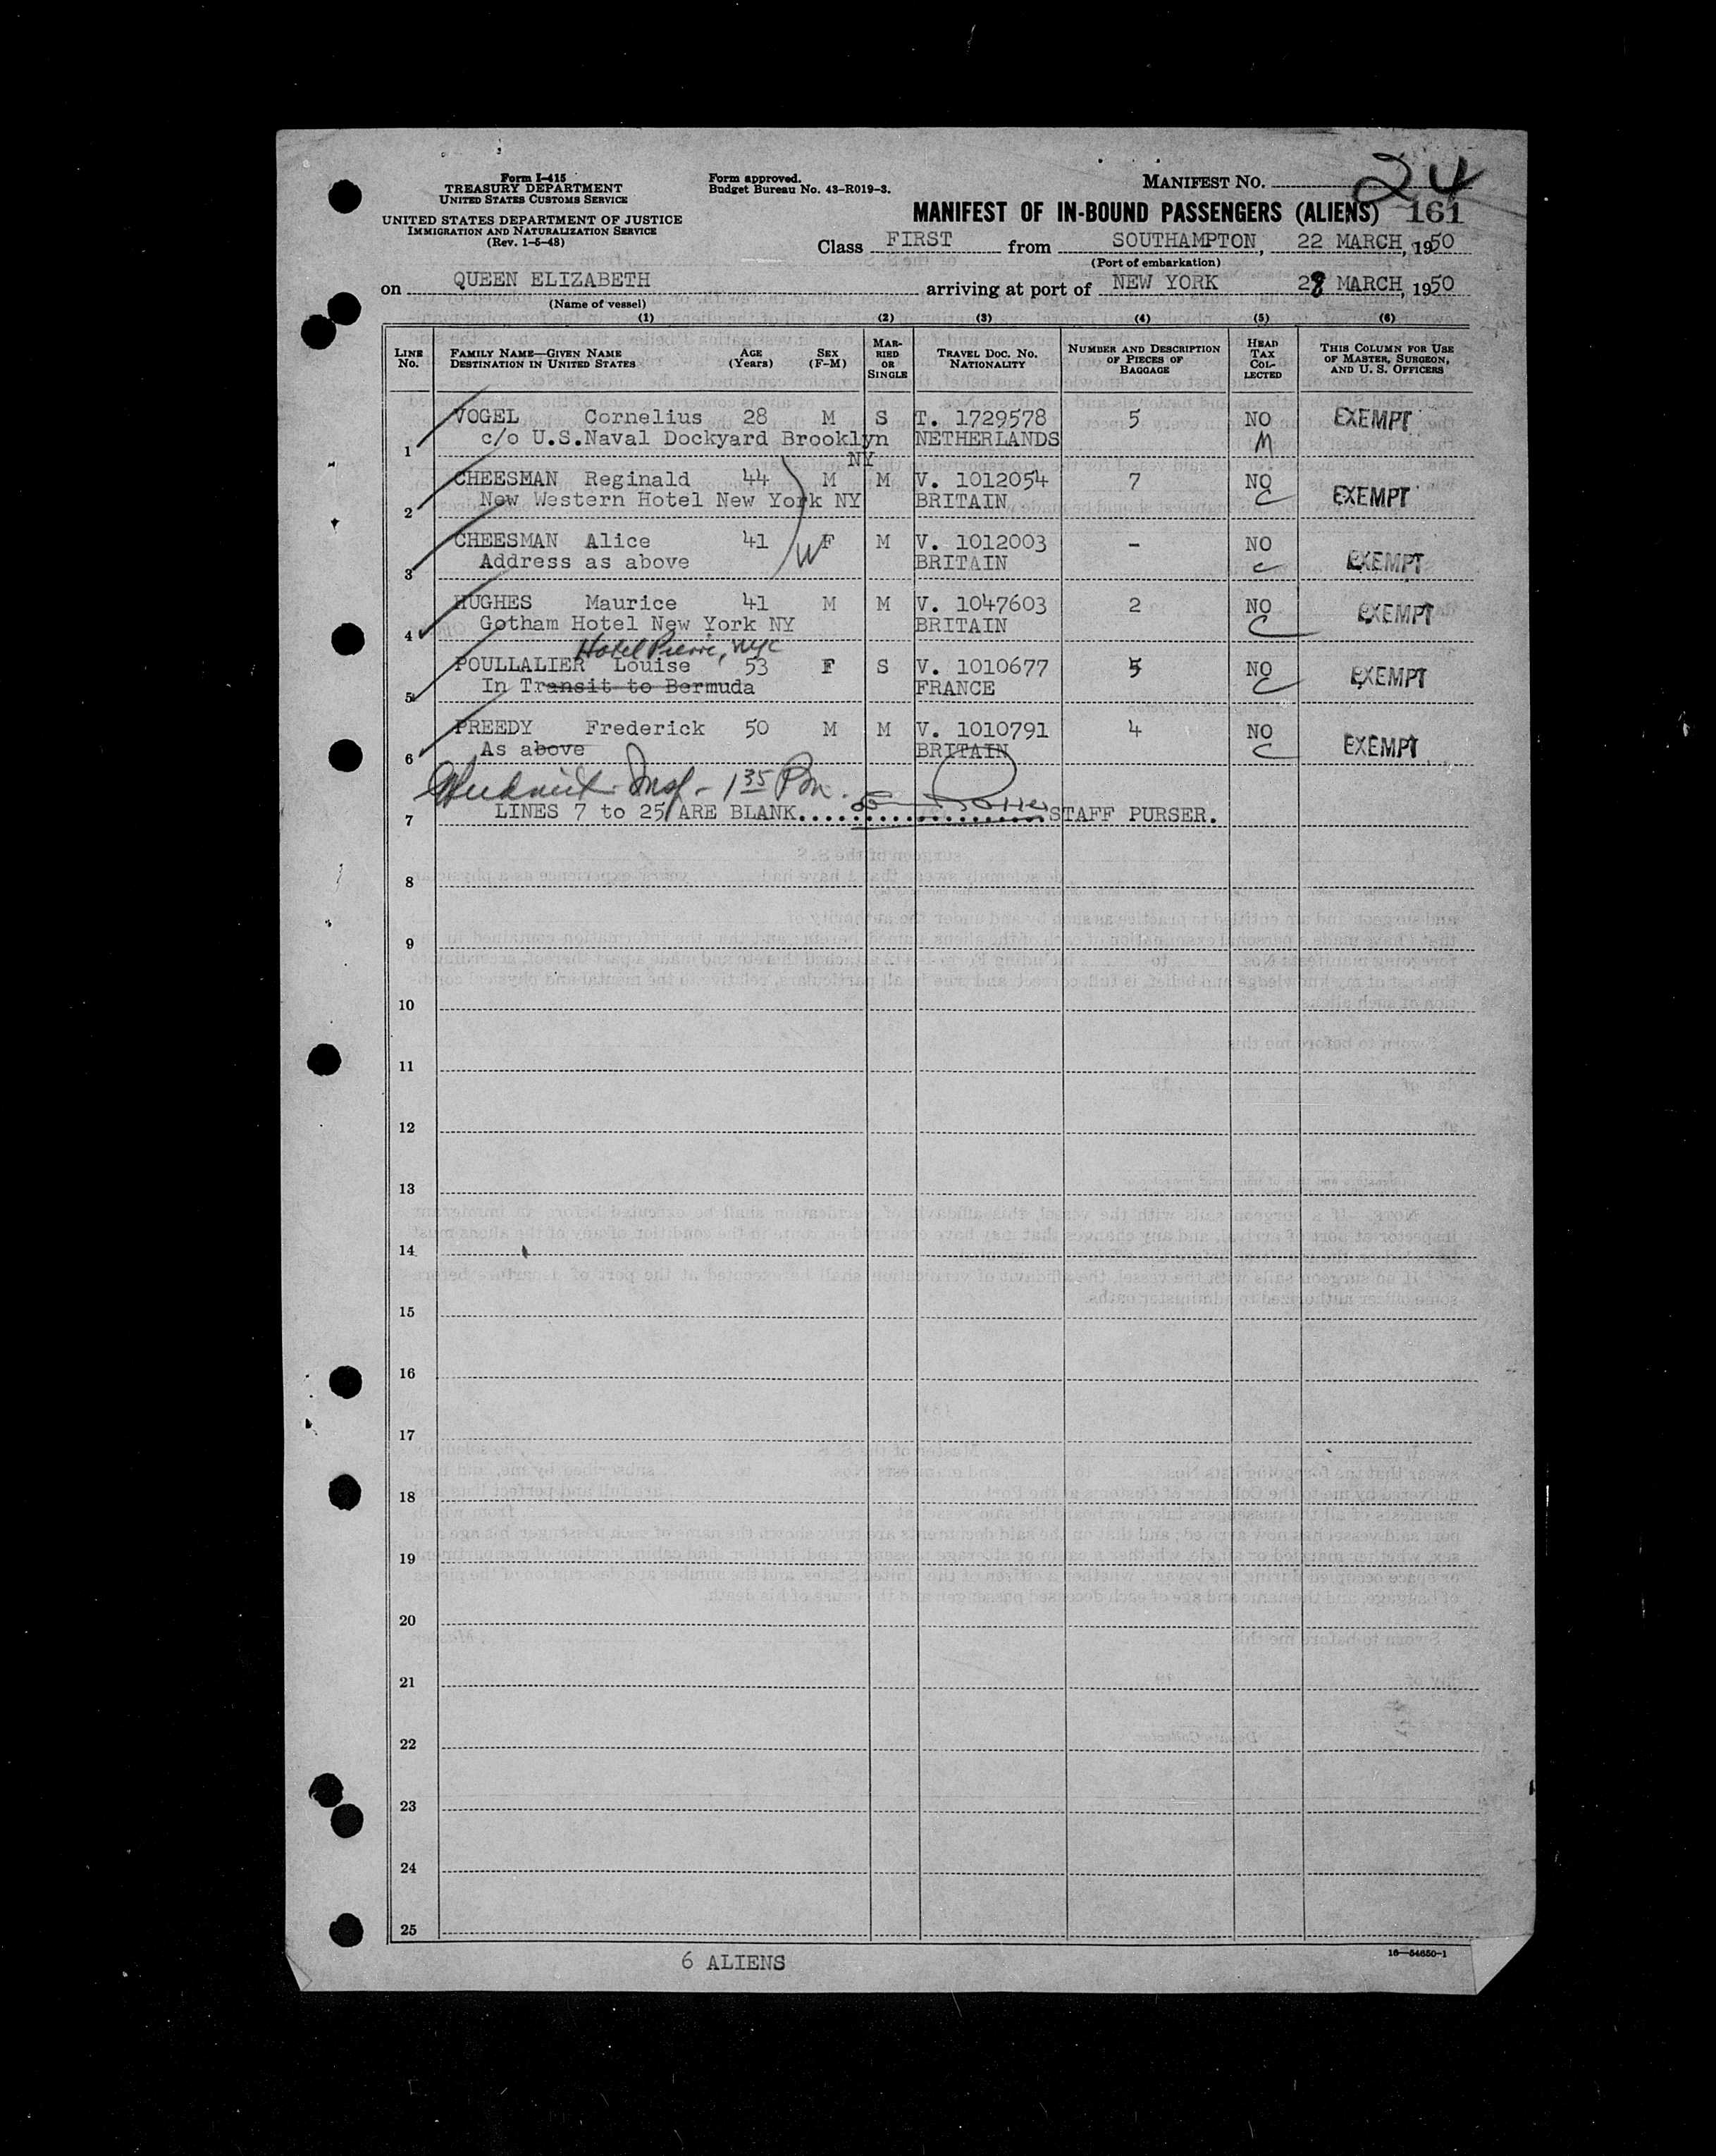 Form I-415
TREASURY DEPARTMENT
UNITED STATES CUSTOMS SERVICE
UNITED STATES DEPARTMENT OF JUSTICE
IMMIGRATION AND NATURALIZATION SERVICE
(Rev. 1-5-48)
Form approved.
Budget Bureau No. 43-R019-3.
MANIFEST NO. 24
MANIFEST OF IN-BOUND PASSENGERS (ALIENS) 161
Class FIRST from SOUTHAMPTON, 22 MARCH, 1950
(Port of embarkation)
on QUEEN ELIZABETH arriving at port of NEW YORK 28 MARCH, 1950
(Name of vessel)
(1) (2) (3) (4) (5) (6)
LINE No. FAMILY NAME—GIVEN NAME DESTINATION IN UNITED STATES AGE (Years) SEX (F-M) MARRIED OR SINGLE TRAVEL DOC. NO. NATIONALITY NUMBER AND DESCRIPTION OF PIECES OF BAGGAGE HEAD TAX COLLECTED THIS COLUMN FOR USE OF MASTER, SURGEON, AND U. S. OFFICERS
1 VOGEL Cornelius 28 M S T. 1729578 5 NO EXEMPT
c/o U.S.Naval Dockyard Brooklyn NETHERLANDS M
NY
2 CHEESMAN Reginald 44 M M V. 1012054 7 NO EXEMPT
New Western Hotel New York NY BRITAIN C
3 CHEESMAN Alice 41 W F M V. 1012003 - NO EXEMPT
Address as above BRITAIN C
4 HUGHES Maurice 41 M M V. 1047603 2 NO EXEMPT
Gotham Hotel New York NY BRITAIN C
Hotel Pierre, NYC
5 POULLALIER Louise 53 F S V. 1010677 5 NO EXEMPT
In Transit to Bermuda FRANCE C
6 PREEDY Frederick 50 M M V. 1010791 4 NO EXEMPT
As above BRITAIN C
Insp - 1 35 Pm.
7 LINES 7 to 25 ARE BLANK....................STAFF PURSER.
8
9
10
11
12
13
14
15
16
17
18
19
20
21
22
23
24
25
6 ALIENS
16—54650-1